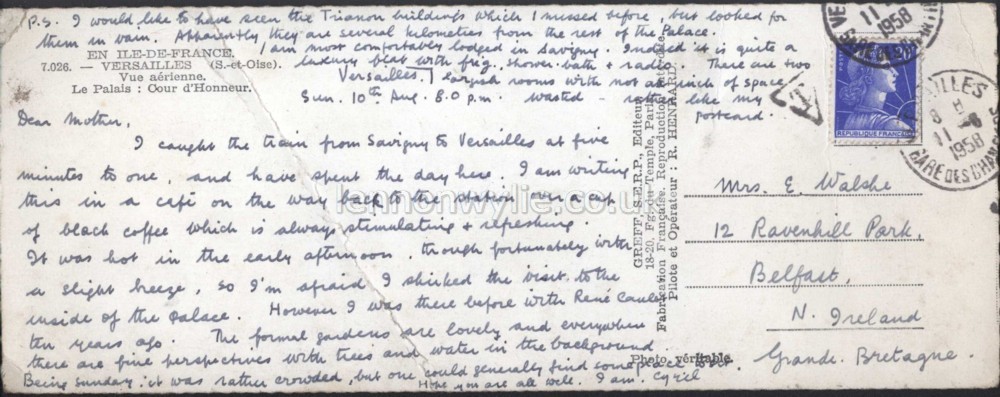 P.S. I would like to have seen the Trianon buildings which I missed before, but looked for
them in vain. Apparently they are several kilometres from the rest of the Palace.
I am most comfortably lodged in Savigny. Indeed it is quite a
luxury flat with frig, shower-bath + radio. There are two
largish rooms with not an inch of space
wasted - rather like my
postcard.
EN ILE-DE-FRANCE.
7.026. — VERSAILLES (S.-et-Oise).
Vue aérienne.
Le Palais : Cour d'Honneur.
Versailles.
Sun. 10th Aug. 8.0 p.m.
Dear Mother,
I caught the train from Savigny to Versailles at five
minutes to one, and have spent the day here. I am writing
this in a café on the way back to the station over a cup
of black coffee which is always stimulating + refreshing.
It was hot in the early afternoon, though fortunately with
a slight breeze, so I'm afraid I shirked the visit to the
inside of the Palace. However I was there before with René
ten years ago. The formal gardens are lovely and everywhere
there are fine perspectives with trees and water in the background
Being Sunday it was rather crowded, but one could generally find some place
Hope you are all well. I am. Cyril
GREFF, S.E.R.P., Editeur
18-20, Fg. du-Temple, Paris
Fabrication Française. Reproduction
Pilote et Opérateur : R. HENRARD
Photo véritable.
20F
REPUBLIQUE FRANCAISE
VERSAILLES
8 H
11 - 8
1958
GARE DES CHANTIERS
Mrs. E. Walshe
12 Ravenhill Park,
Belfast,
N. Ireland
Grande Bretagne.
lennonwylie.co.uk